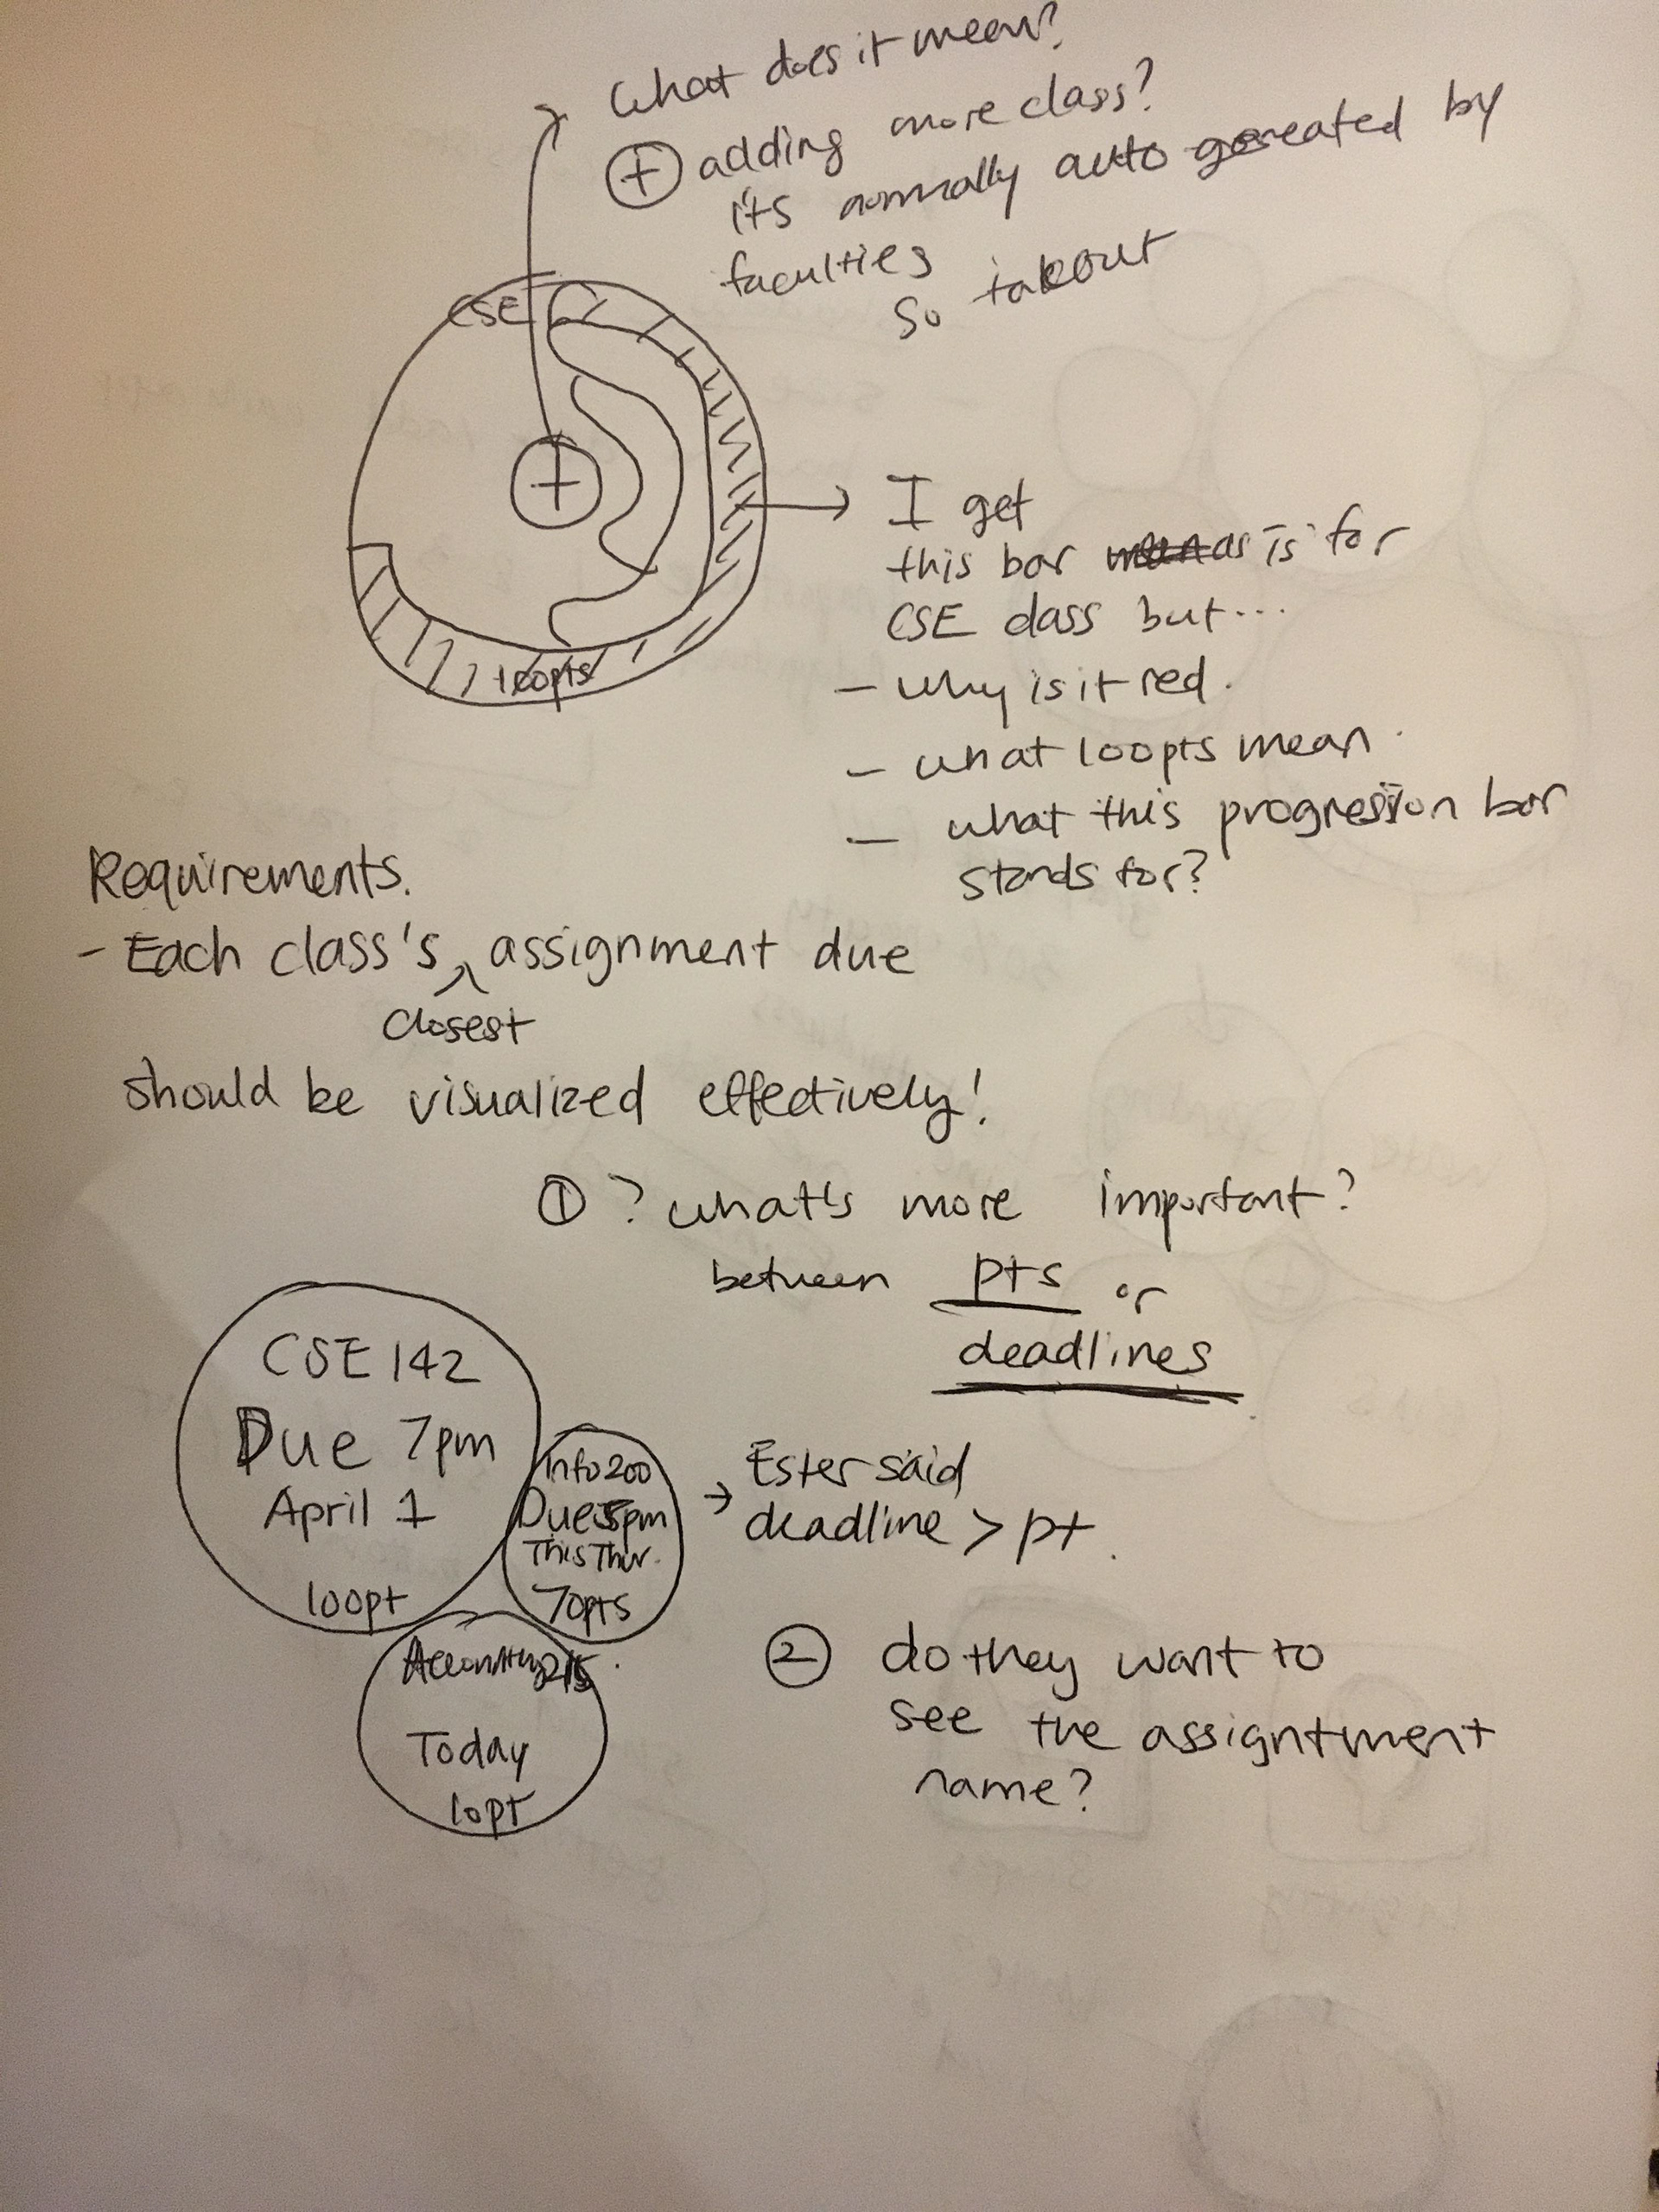 What does it mean?
+ adding more class?
its normally auto gereated by
faculties
So takeout
CSE
100pts
I get
this bar is for
CSE class but...
- why is it red.
- what 100pts mean.
- what this progression bar
stands for?
Requirements.
- Each class's closest assignment due
should be visualized effectively!
① ? what's more important?
between pts or
deadlines
CSE 142
Due 7pm
April 1
100pt
Info200
Due 5pm
This Thur.
70pts
→ Ester said
deadline > pt.
Accounting 215
Today
10pt
② do they want to
see the assigntment
name?